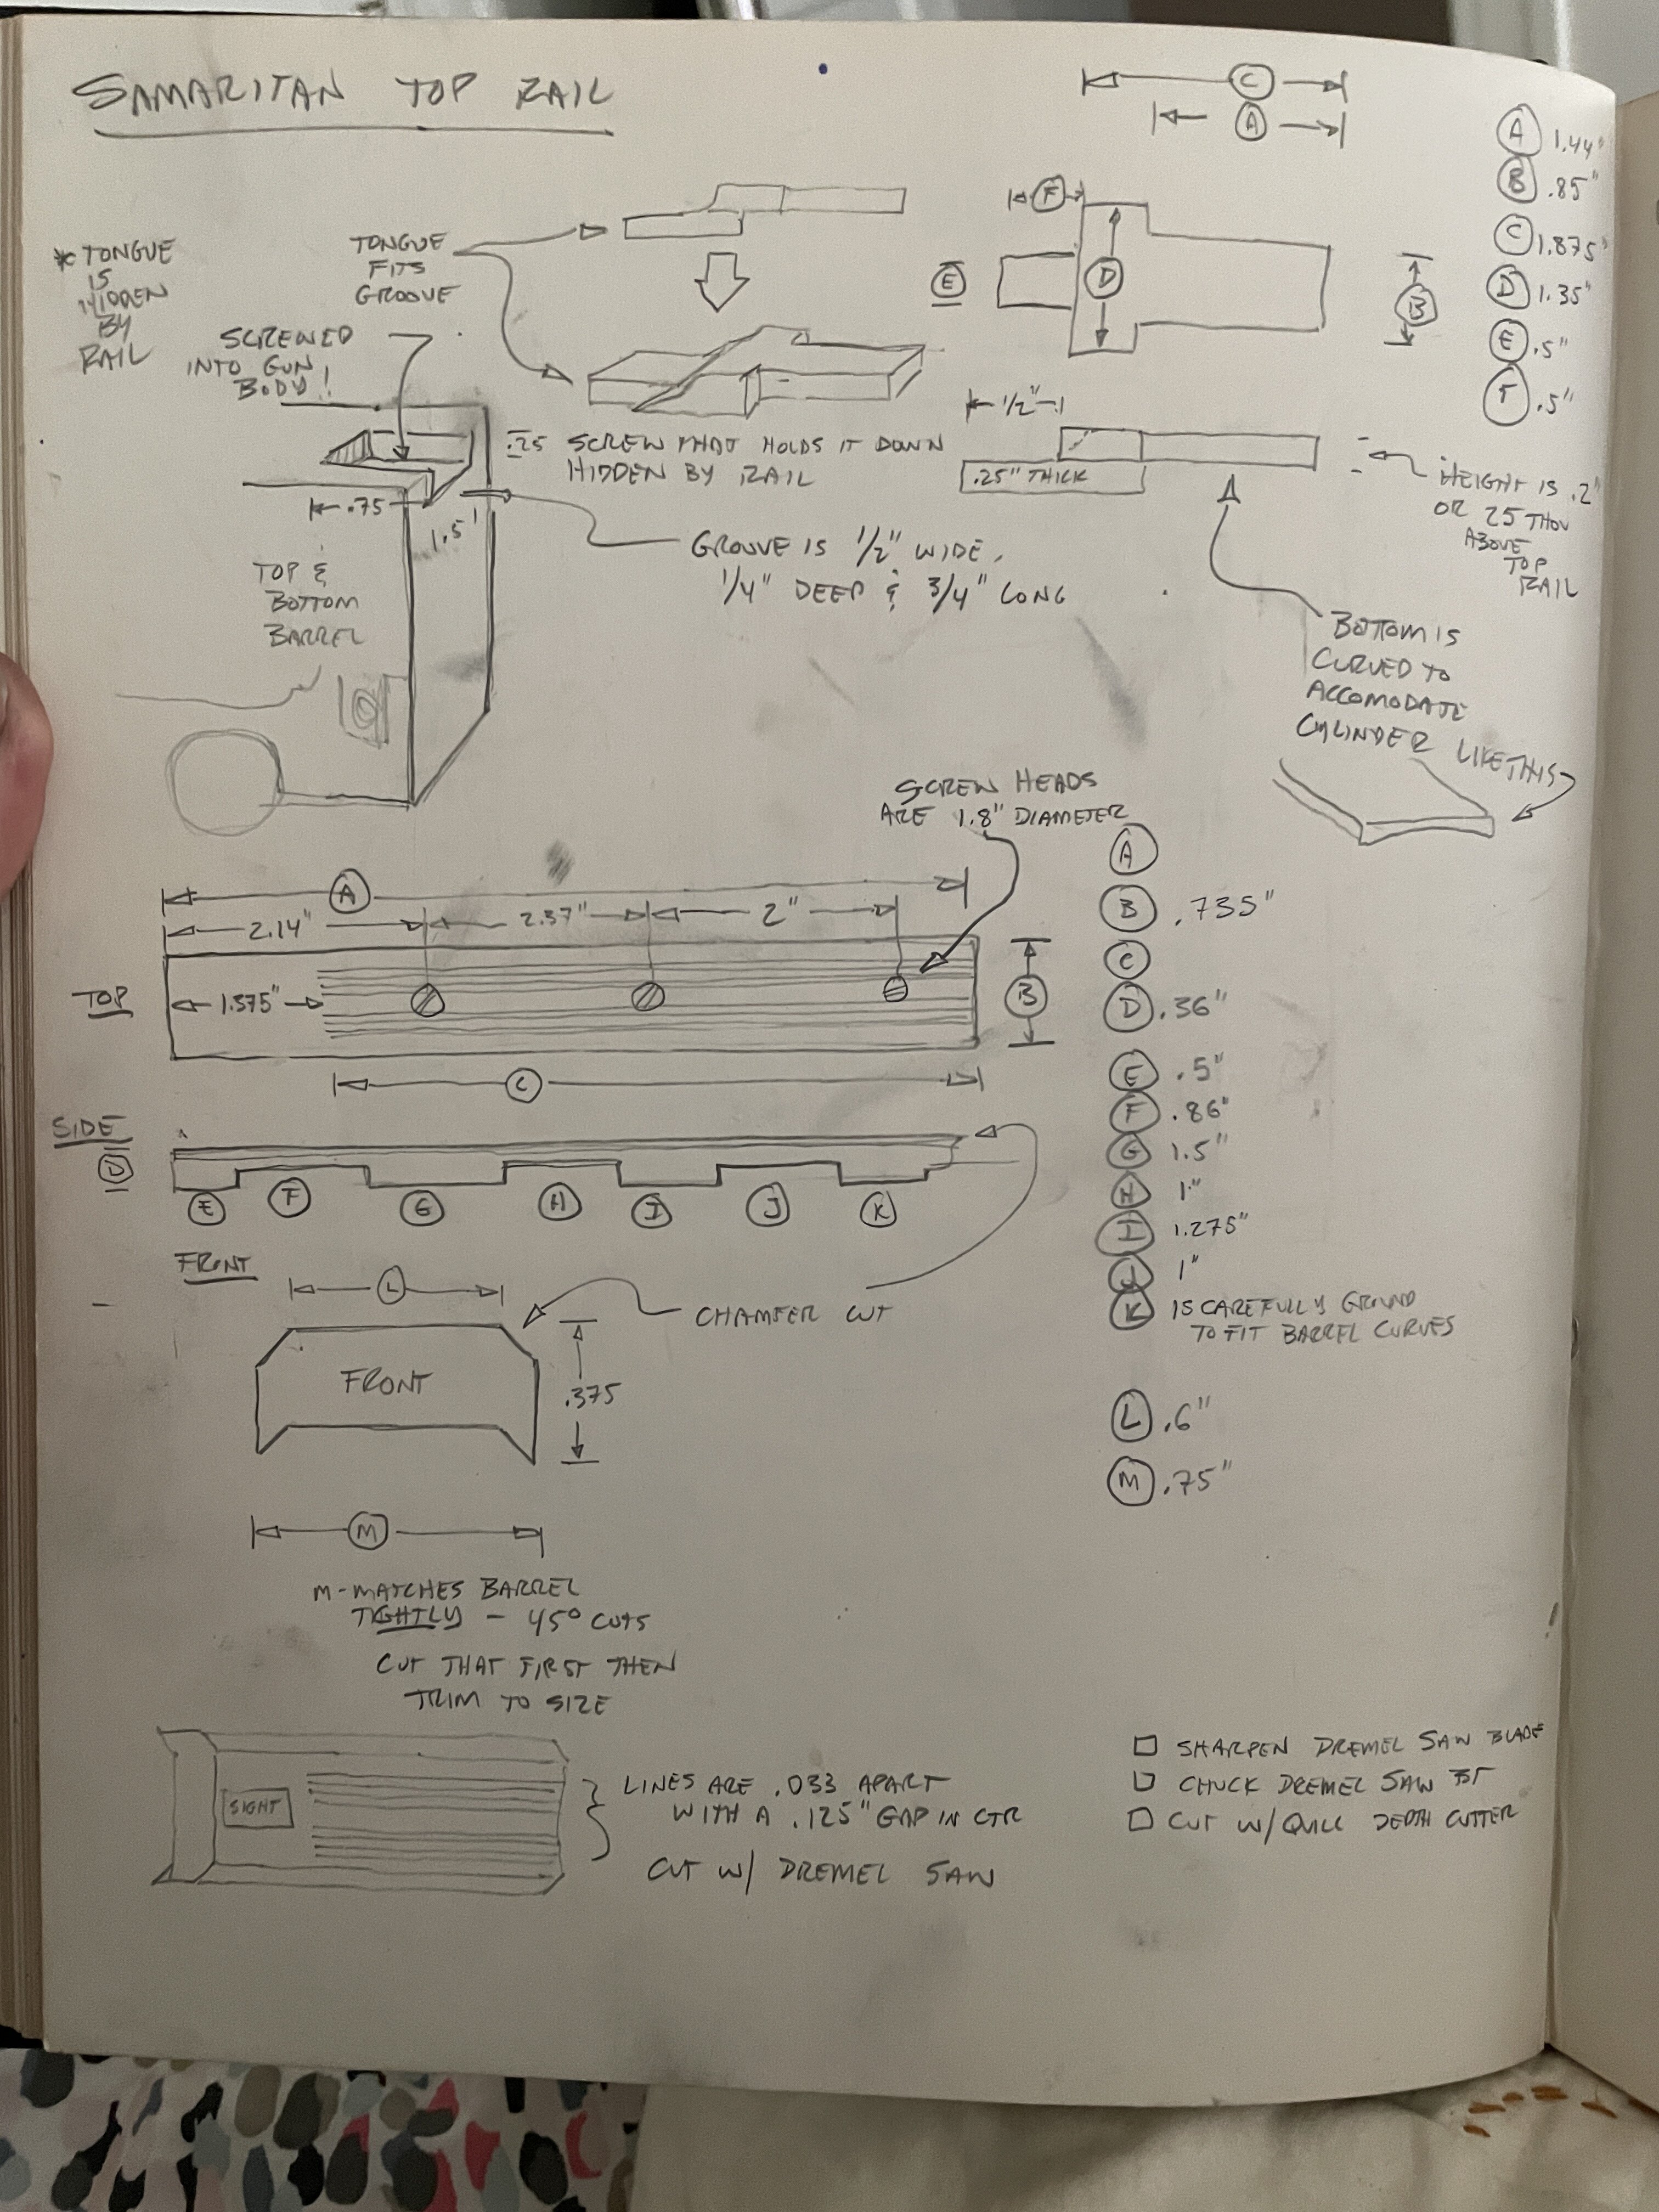 SAMARITAN TOP RAIL
C
A
A 1.44"
B .85"
C 1.875"
D 1.35"
E .5"
F .5"
* TONGUE
IS
HIDDEN
BY
RAIL
TONGUE
FITS
GROOVE
SCREWED
INTO GUN
BODY!
F
E
D
B
.25
SCREW THAT HOLDS IT DOWN
HIDDEN BY RAIL
1/2"
.25" THICK
HEIGHT IS .2"
OR 25 THOU
ABOVE
TOP
RAIL
.75
1.5
GROOVE IS 1/2" WIDE,
1/4" DEEP & 3/4" LONG
TOP &
BOTTOM
BARREL
BOTTOM IS
CURVED TO
ACCOMODATE
CYLINDER LIKE THIS
SCREW HEADS
ARE 1.8" DIAMETER
A
2.14"
2.37"
2"
TOP
1.375"
B
C
A
B .735"
C
D .36"
E .5"
F .86"
G 1.5"
H 1"
I 1.275"
J 1"
K IS CAREFULLY GROUND
TO FIT BARREL CURVES
L .6"
M .75"
SIDE
D
E
F
G
H
I
J
K
FRONT
L
CHAMFER CUT
FRONT
.375
M
M-MATCHES BARREL
TIGHTLY - 45° CUTS
CUT THAT FIRST THEN
TRIM TO SIZE
SIGHT
LINES ARE .033 APART
WITH A .125" GAP IN CTR
CUT W/ DREMEL SAW
SHARPEN DREMEL SAW BLADE
CHUCK DREMEL SAW
CUT W/ QUILL DEPTH CUTTER